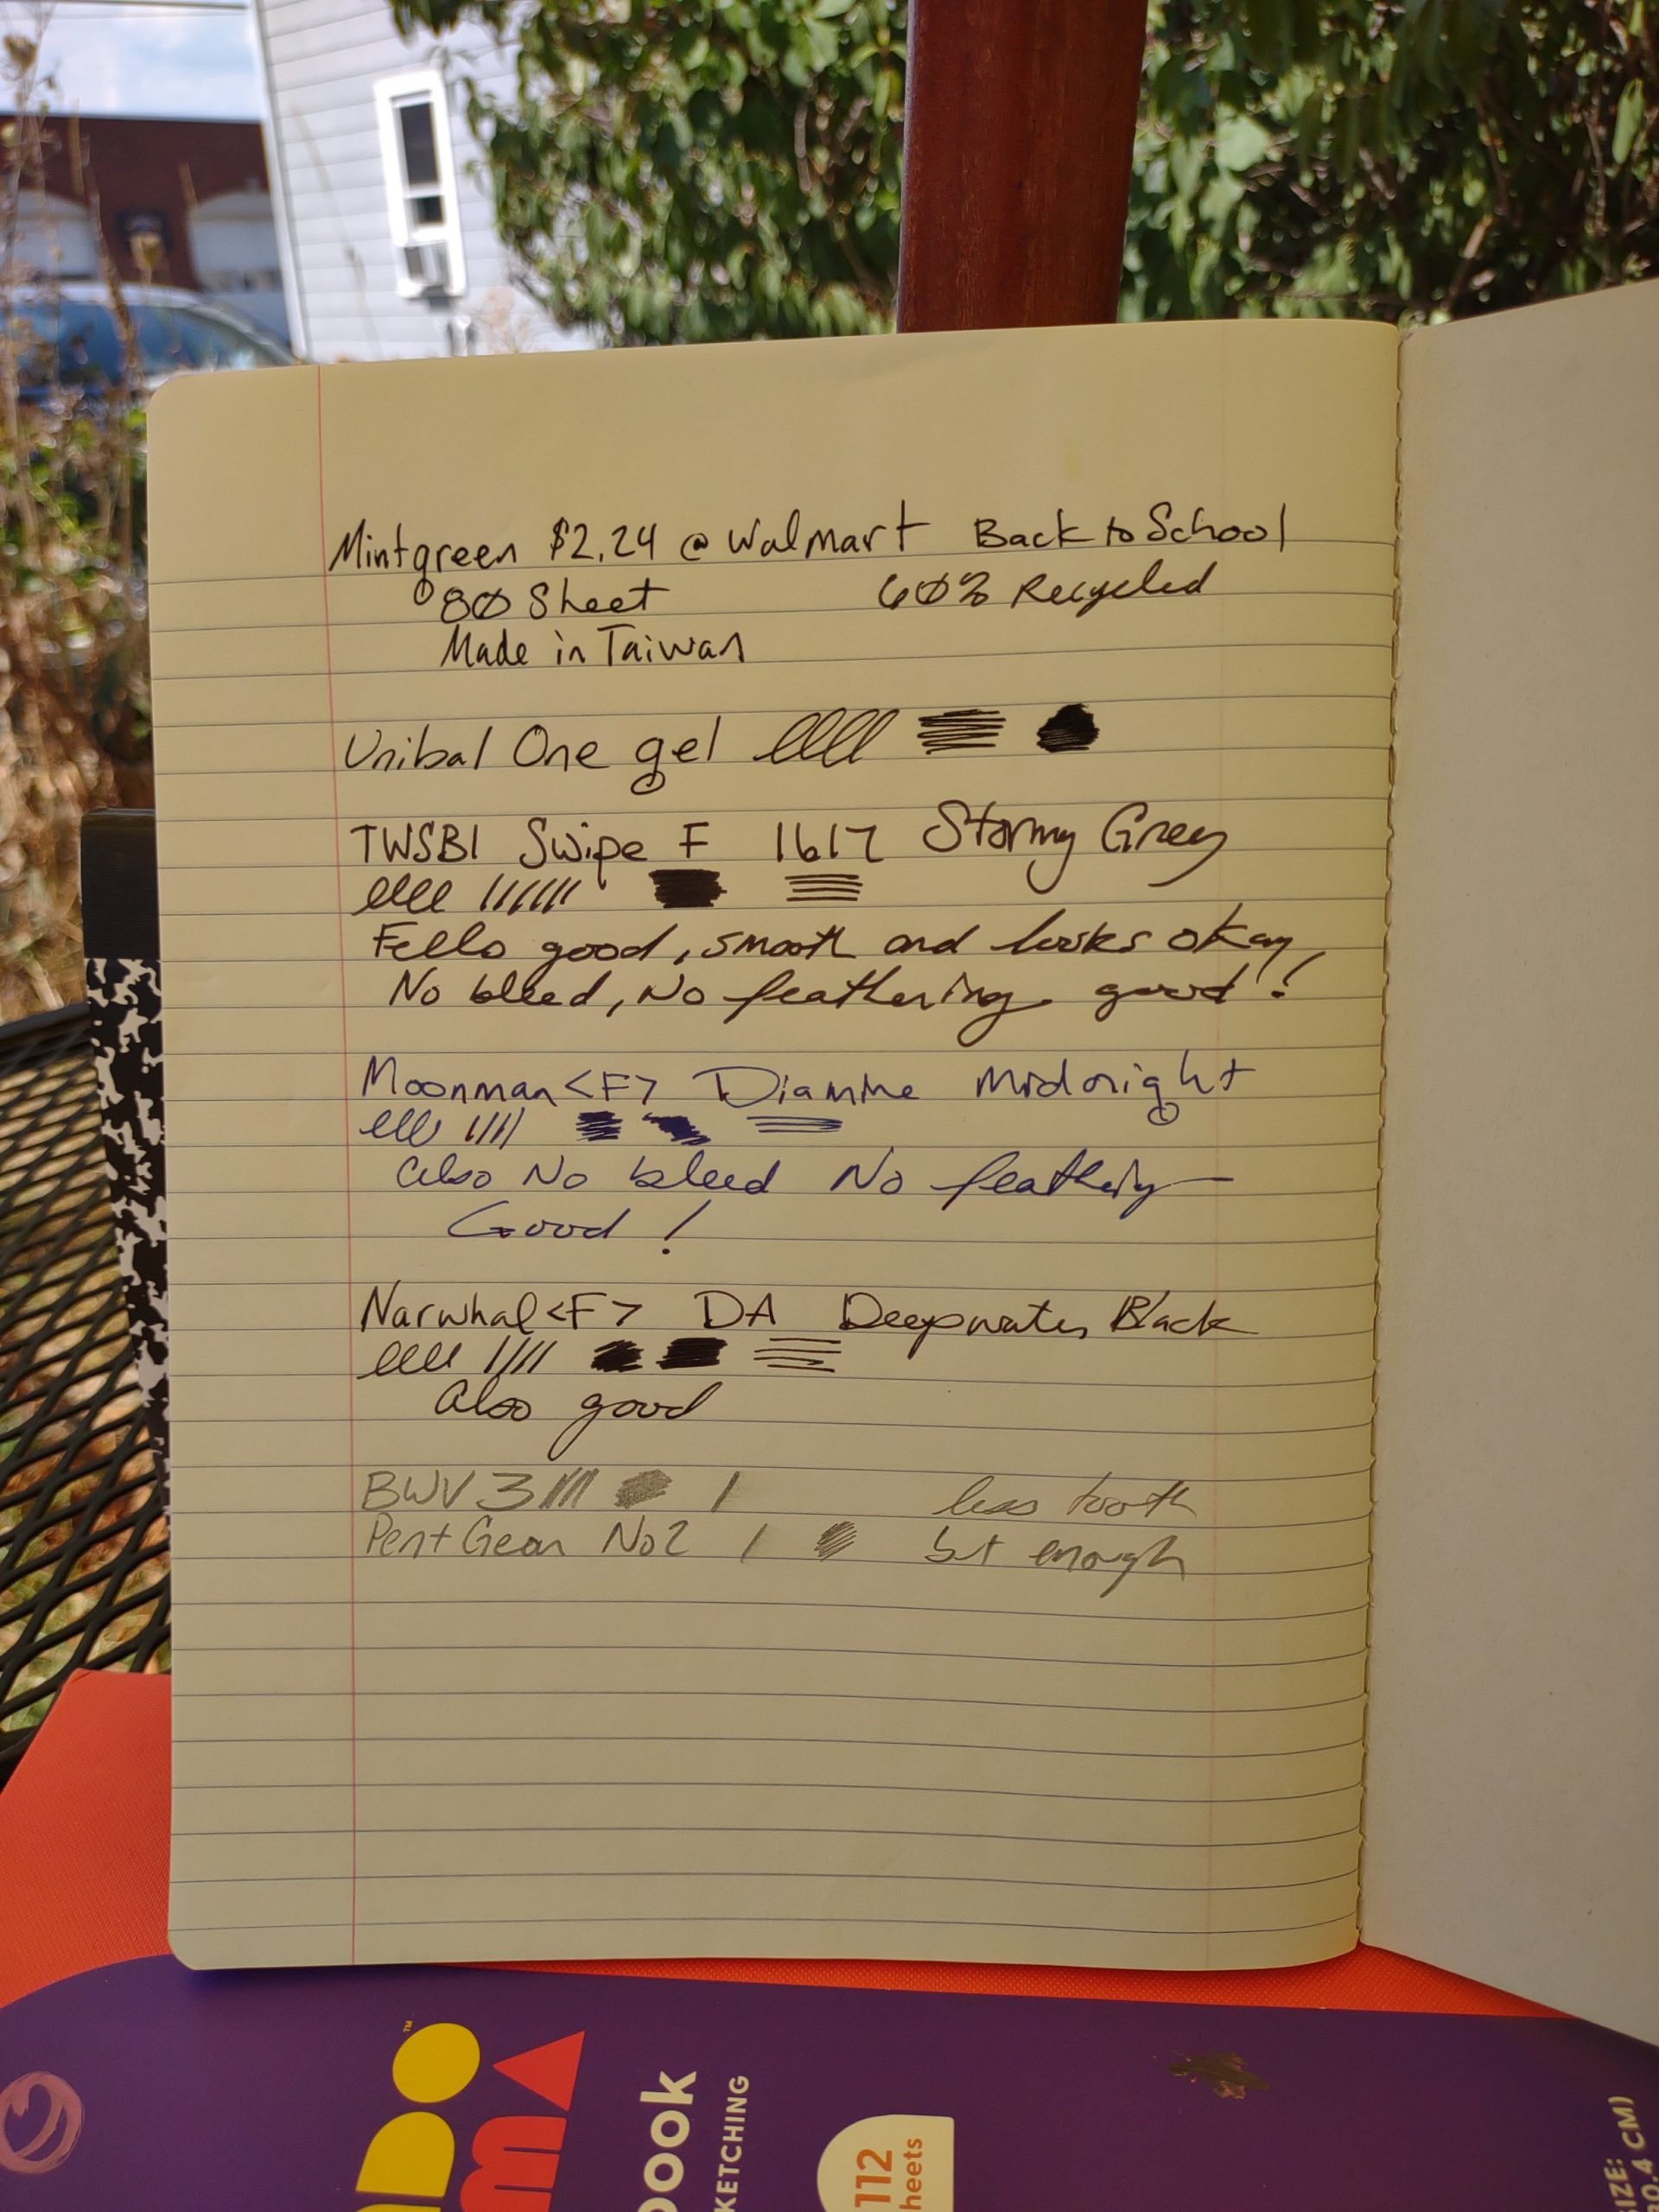 Mintgreen $2.24 @ Walmart Back to School
80 Sheet 60% Recycled
Made in Taiwan
Unibal One gel
TWSBI Swipe F 1617 Stormy Grey
Fells good, smooth and looks okay,
No bleed, No feathering. good!
Moonman <F> Diamine Midnight
also No bleed No feathering
Good!
Narwhal <F> DA Deepwater Black
Also good
BWV 3 less tooth
Pent Gear No2 but enough
DO™
MA
ook
KETCHING
112
heets
IZE:
0.4 CM)